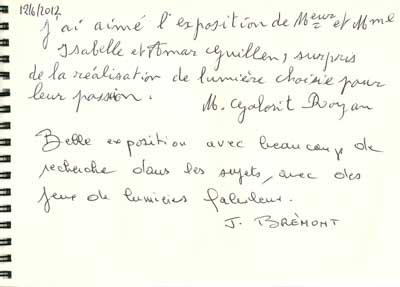 12/6/2012
j'ai aimé l'exposition de Meur et Mme
Isabelle et Amar Guillen, surpris
de la réalisation de lumière choisie pour
leur passion.
M. Royan
Belle exposition avec beaucoup de
recherche dans les sujets, avec des
jeux de lumières fabuleux.
J. BRÉMONT